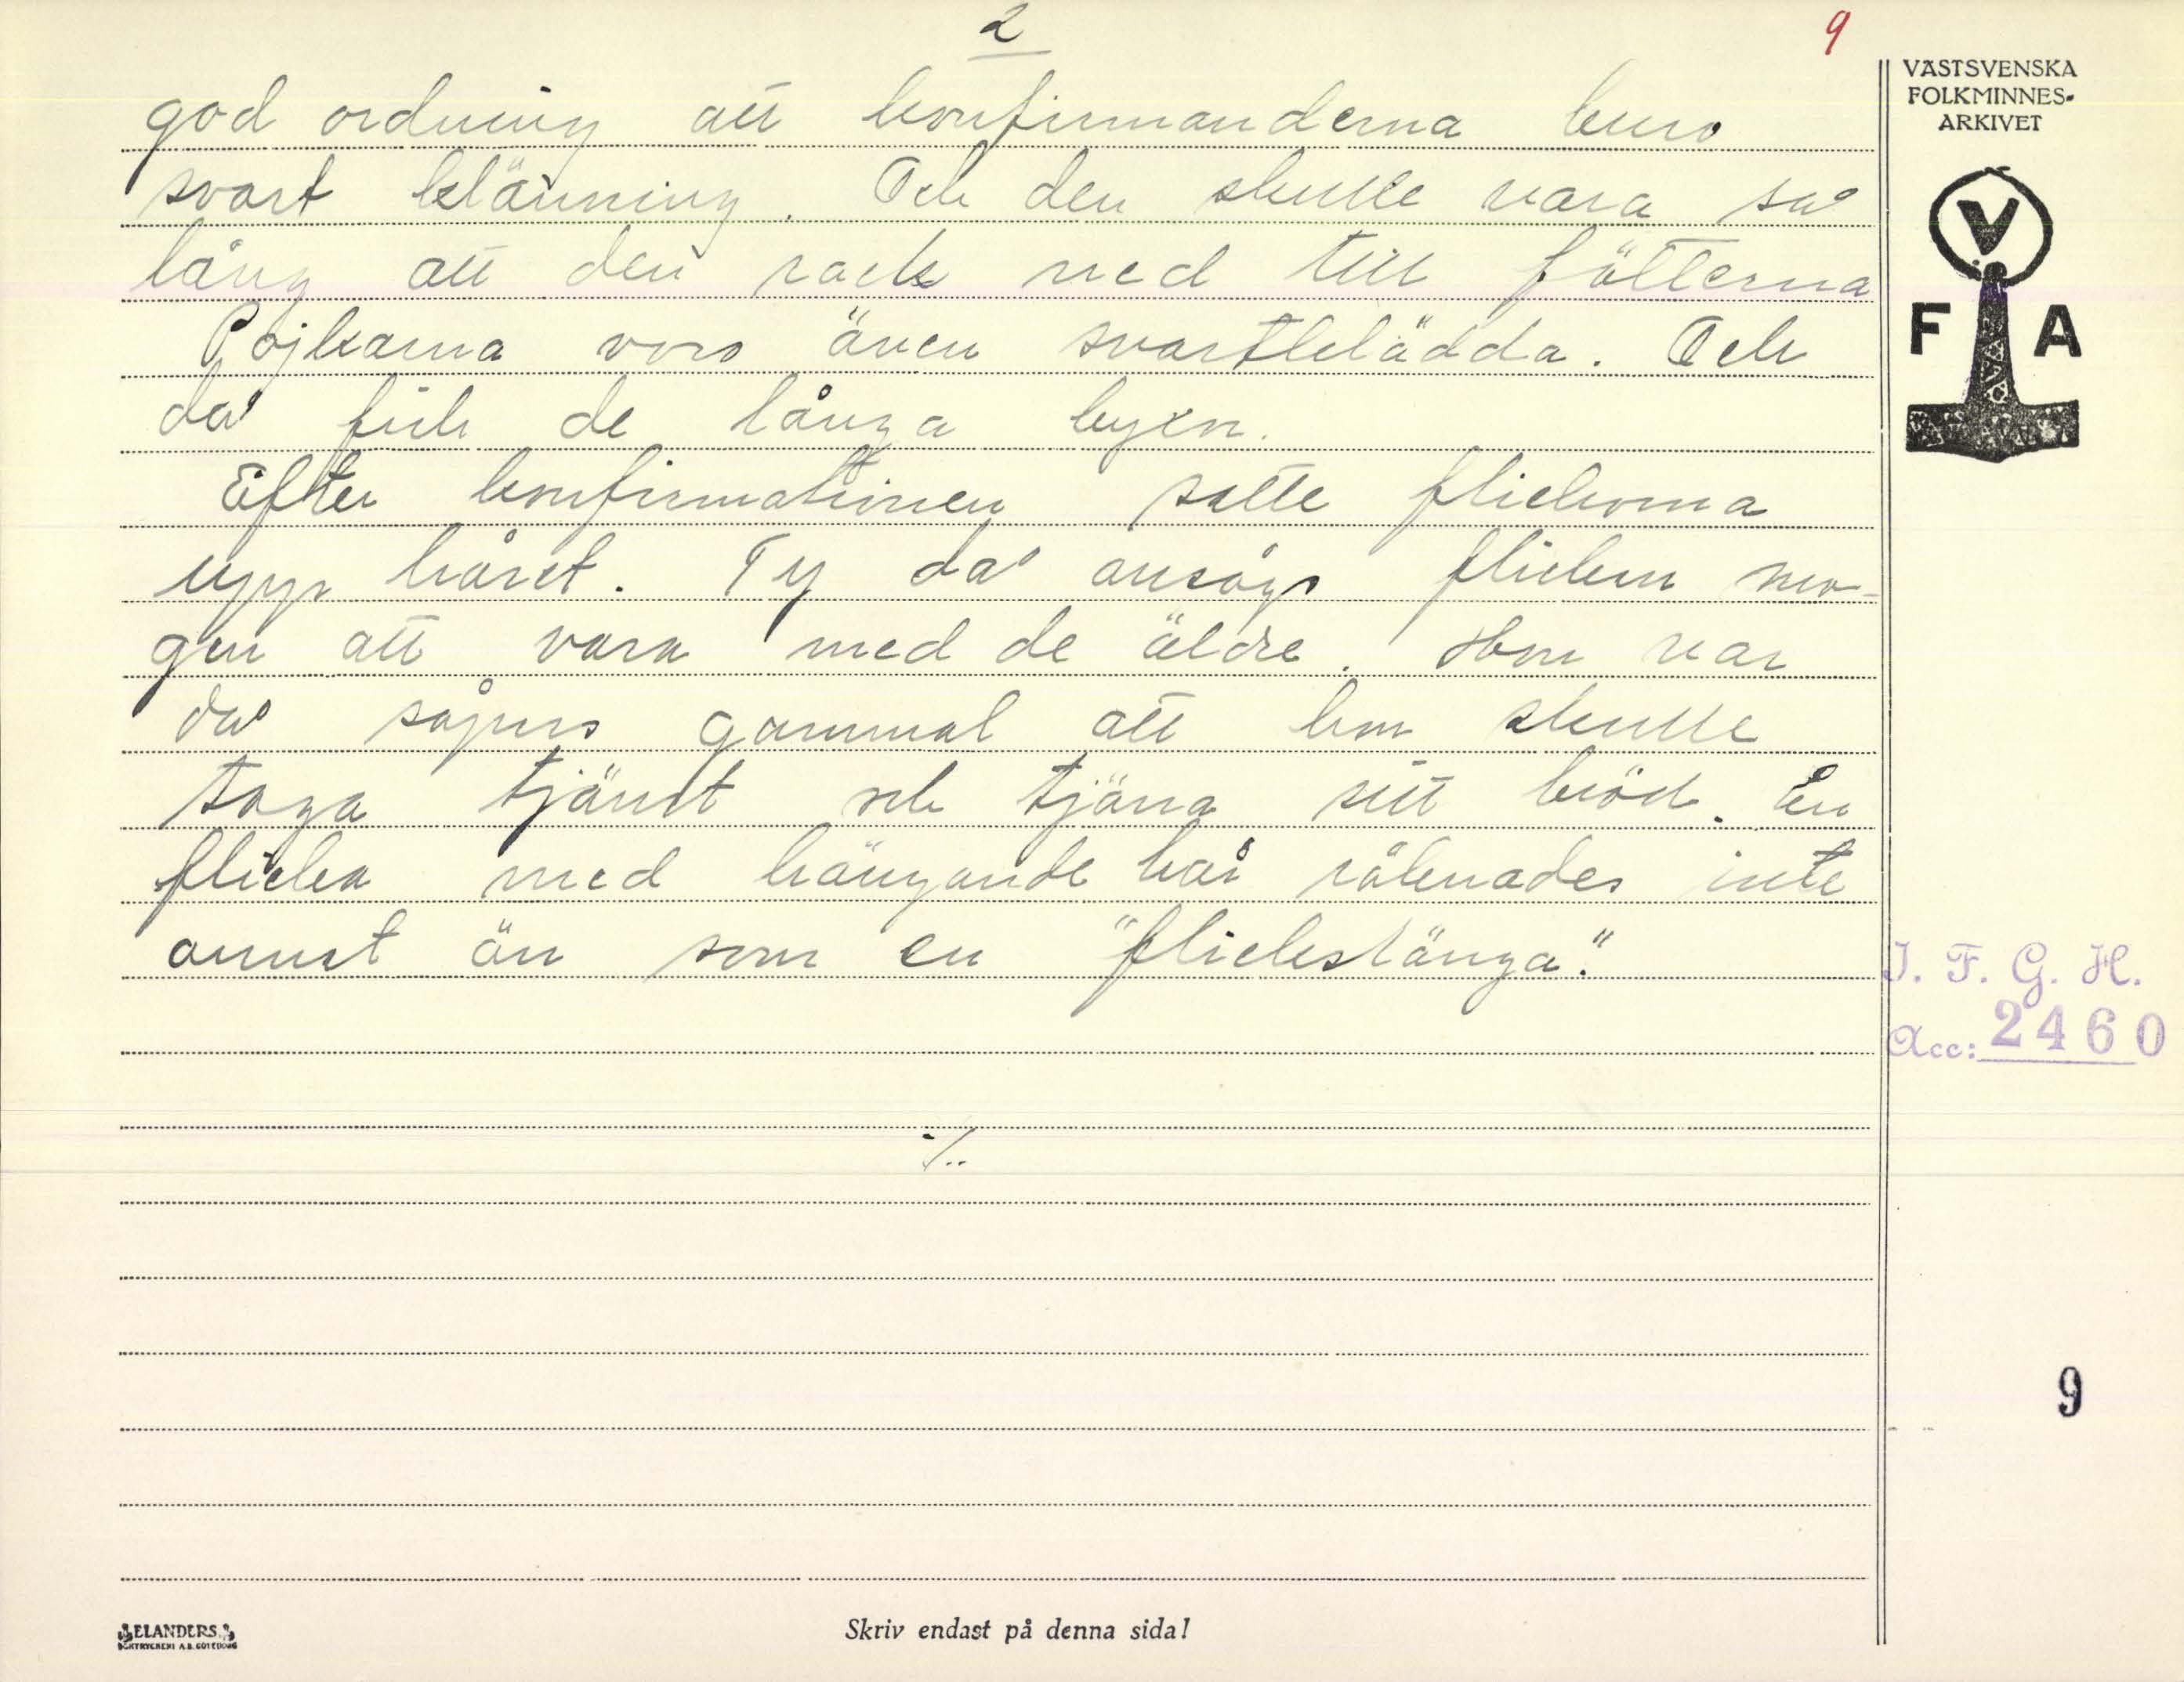 2
9
god ordning att konfirmanderna buro
svart klänning. Och den skulle vara så
lång att den rack ned till fötterna
Pojkarna voro även svartklädda. Och
då fick de långa byxor.
Efter konfirmationen satte flickorna
upp håret. Ty då ansågs flickan mo-
gen att vara med de äldre. Hon var
då såpass gammal att hon skulle
taga tjänst och tjäna sitt bröd. En
flicka med hängande hår räknades inte
annat än som en "flickslänga".
./..
VÄSTSVENSKA
FOLKMINNES-
ARKIVET
V
F A
I. F. G. H.
Acc: 2460
9
ELANDERS
BOKTRYCKERI A.B. GÖTEBORG
Skriv endast på denna sida!